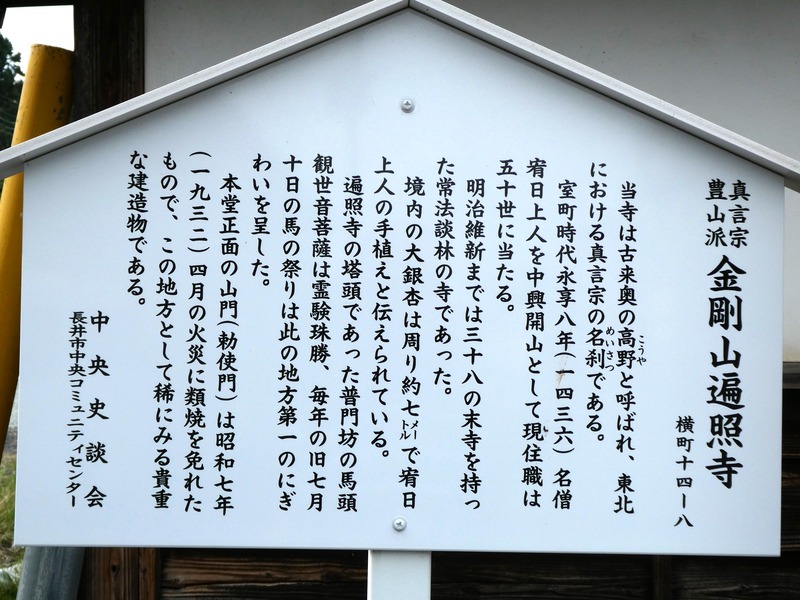 真言宗
豊山派
金剛山遍照寺
横町十四ー八
当寺は古来奥の高野と呼ばれ、東北
こうや
における真言宗の名刹である。
めいさつ
室町時代永享八年(一四三六)名僧
宥日上人を中興開山として現住職は
五十世に当たる。
明治維新までは三十八の末寺を持っ
た常法談林の寺であった。
境内の大銀杏は周り約七メートルで宥日
上人の手植えと伝えられている。
遍照寺の塔頭であった普門坊の馬頭
観世音菩薩は霊験珠勝、毎年の旧七月
十日の馬の祭りは此の地方第一のにぎ
わいを呈した。
本堂正面の山門(勅使門)は昭和七年
(一九三二)四月の火災に類焼を免れた
もので、この地方として稀にみる貴重
な建造物である。
中央史談会
長井市中央コミュニティセンター